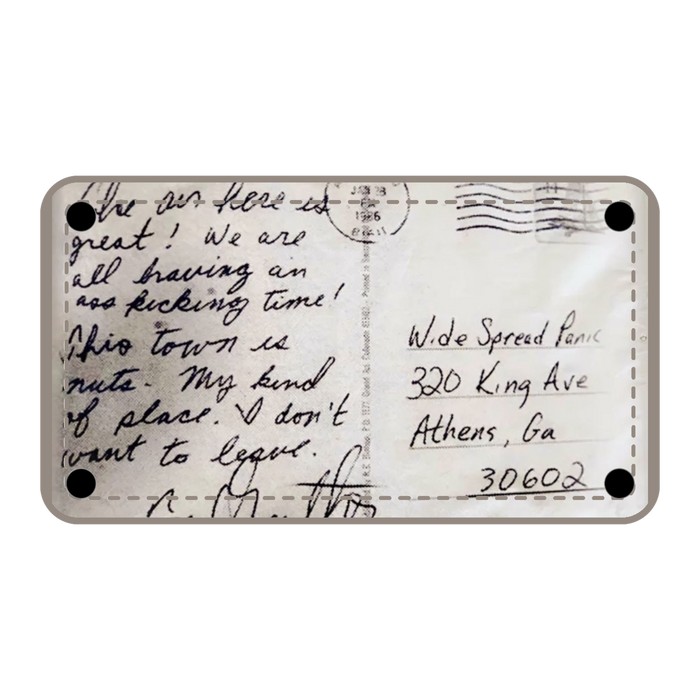 The air here is
great! We are
all having an
ass kicking time!
This town is
nuts. My kind
of place. I don't
want to leave.
JAN 28
1986
Wide Spread Panic
320 King Ave
Athens, Ga
30602